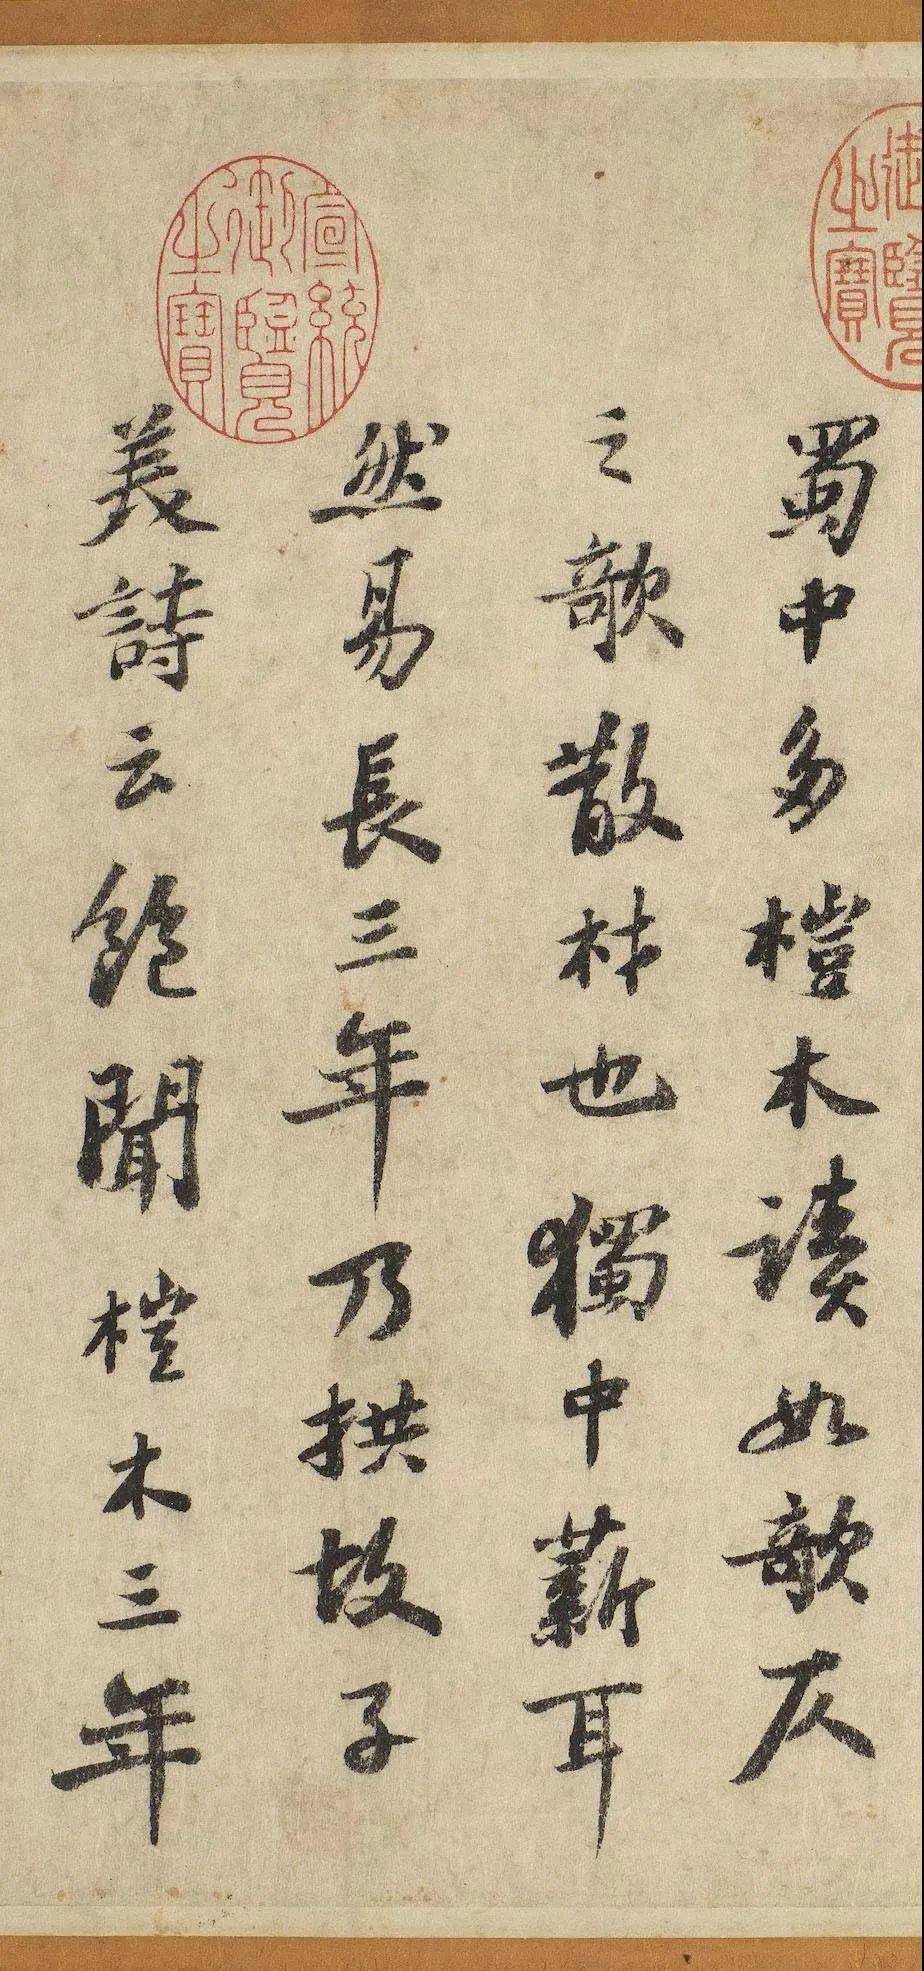 御覽
之寶
蜀中多榿木讀如欹仄
之欹散材也獨中薪耳
宣統
御覽
之寶
然易長三年乃拱故子
美詩云飽聞榿木三年